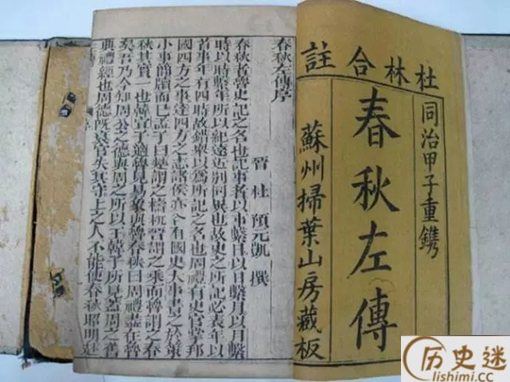 杜林合註
同治甲子重鐫
春秋左傳
蘇州掃葉山房藏板
春秋左傳序
晉 杜 預元凱 撰
春秋者魯史記之名也記事者以事繫日以日繫月以月繫
時以時繫年所以紀遠近別同異也故史之所記必表年以
首事年有四時故錯舉以爲所記之名也周禮有史官掌邦
國四方之事達四方之志諸侯亦各有國史大事書之於策
小事簡牘而已孟子曰楚謂之檮杌晉謂之乘而魯謂之春
秋其實一也韓宣子適魯見易象與魯春秋曰周禮盡在魯
矣吾乃今知周公之德與周之所以王韓子所見蓋周之舊
典禮經也周德既衰官失其守上之人不能使春秋昭明赴
历史迷
lishimi.cc